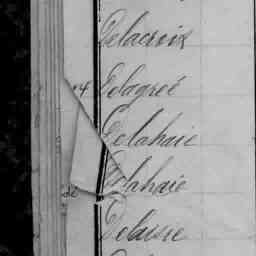 Delacroix
14 Delagreé
Delahaie
Delahaie
Delaisie